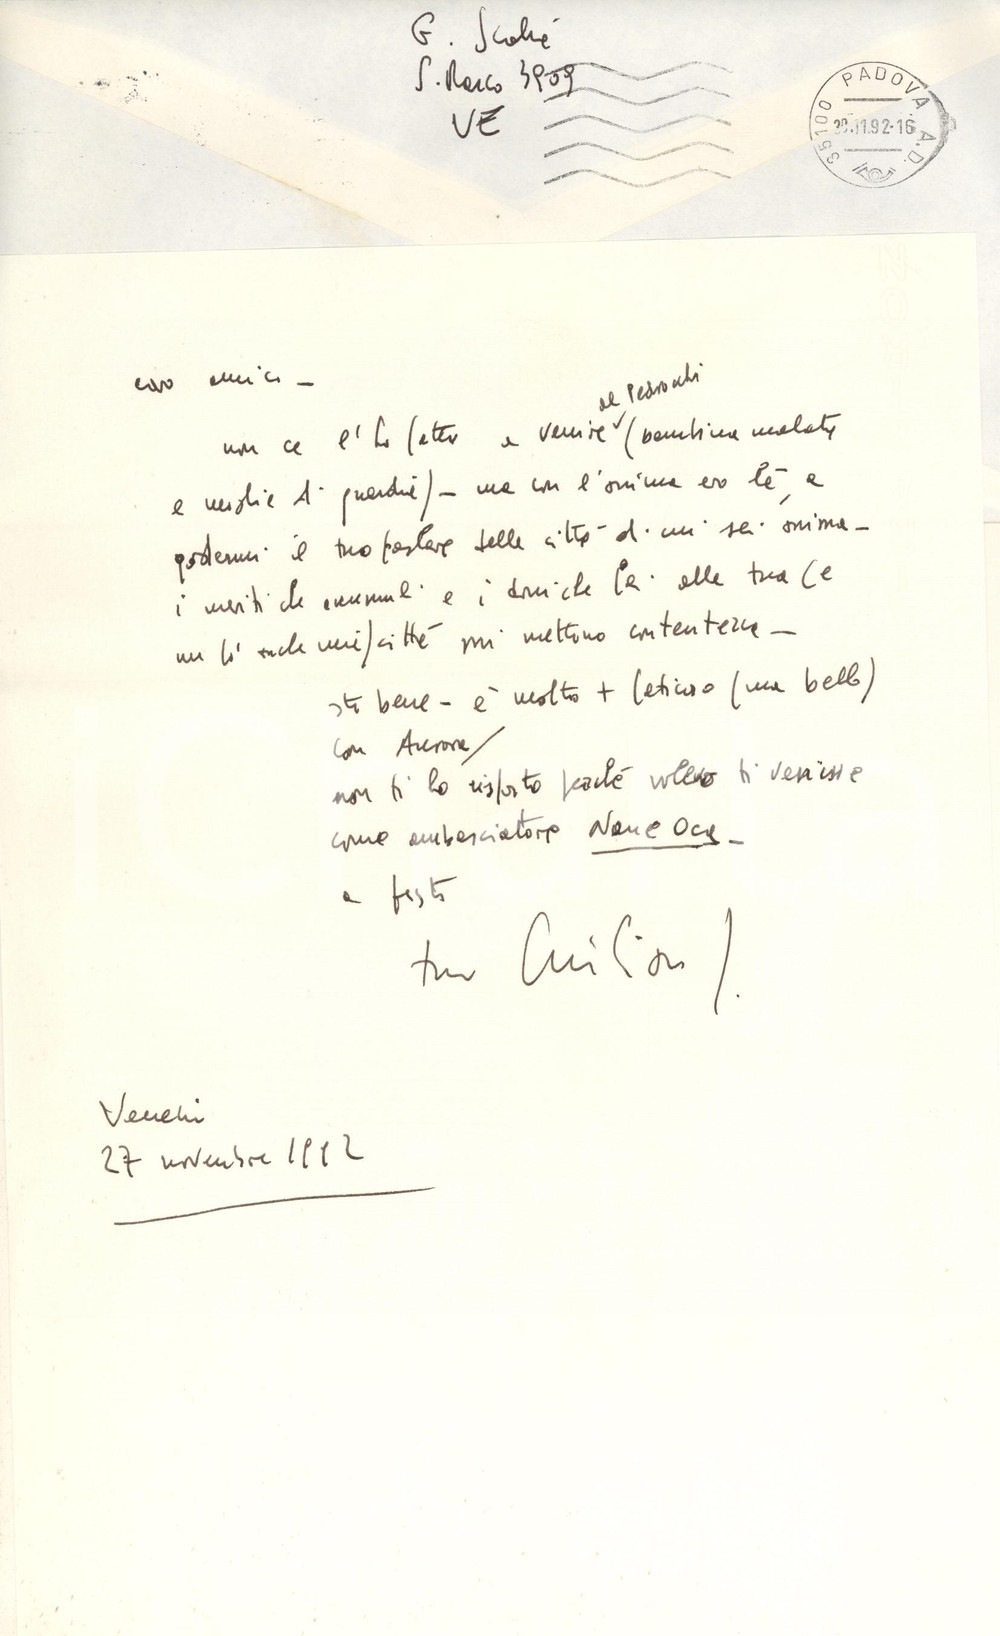 G. Scabia
S. Marco 3909
VE
35100 PADOVA A.D.
30.11.92-16
caro amico –
non ce l'ho fatta a venire al Pedrocchi (bambina malata
e moglie di guardia) – ma con l'anima ero là, a
godermi il tuo parlare della città di cui sei anima –
i meriti che accumuli e i doni che fai alla tua (e
un po' anche mia) città mi mettono contentezza –
sto bene – è molto + faticoso (ma bello)
con Aurora /
non ti ho risposto perché volevo ti venisse
come ambasciatore Nane Oca –
a presto
tuo Giuliano S.
Venezia
27 novembre 1992